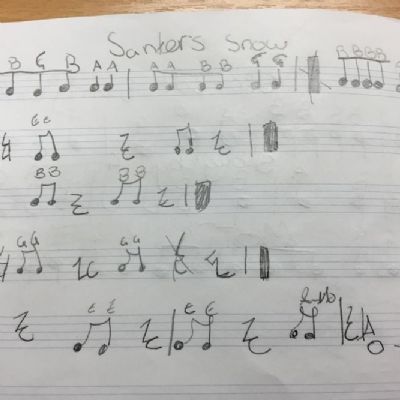 Santers Snow
B G B A A A A B B G G B B B B
G G
B B B B
G G G G
E E E E